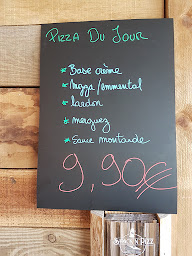 Pizza Du Jour
* Base crème
* Mozza/emmental
* lardon
* merguez
* Sauce moutarde
9,90€